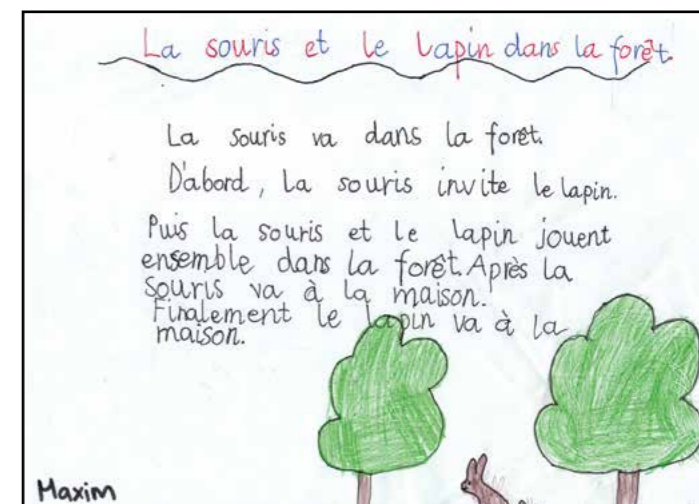 La souris et le lapin dans la forêt.
La souris va dans la forêt.
D'abord, la souris invite le lapin.
Puis la souris et le lapin jouent
ensemble dans la forêt. Après la
souris va à la maison.
Finalement le lapin va à la
maison.
Maxim